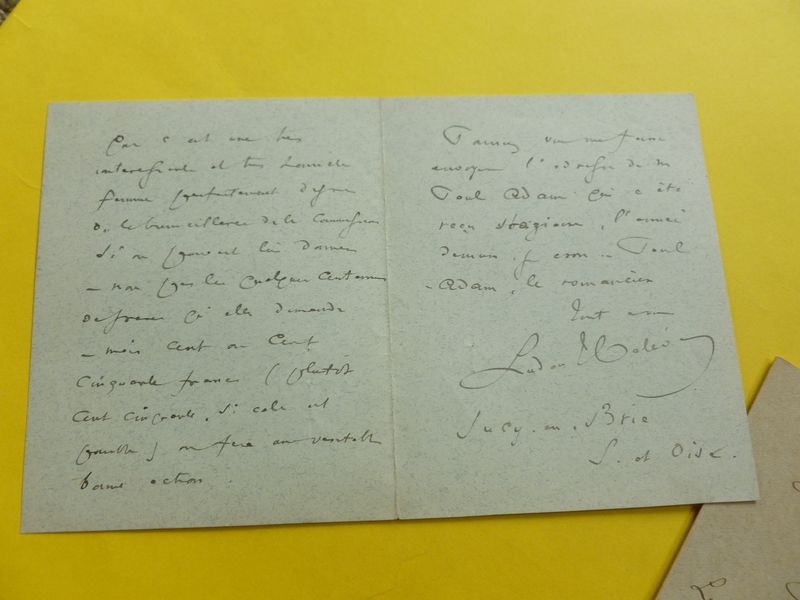 Car c'est une très
intéressante et très honnête
femme parfaitement digne
de la bienveillance de la Commission
Si on pouvait lui donner
– non pas les quelques centaines
de francs qu'elle demande
– mais cent ou cent
cinquante francs (plutôt
cent cinquante, si cela est
possible) on fera une véritable
bonne action.
vous me faire
envoyer l'adresse de M
Paul Adam qui a été
reçu stagiaire, l'année
Paul
Adam, le romancier
Tout à vous
Ludovic Halévy
Sucy-en-Brie
S. et Oise.